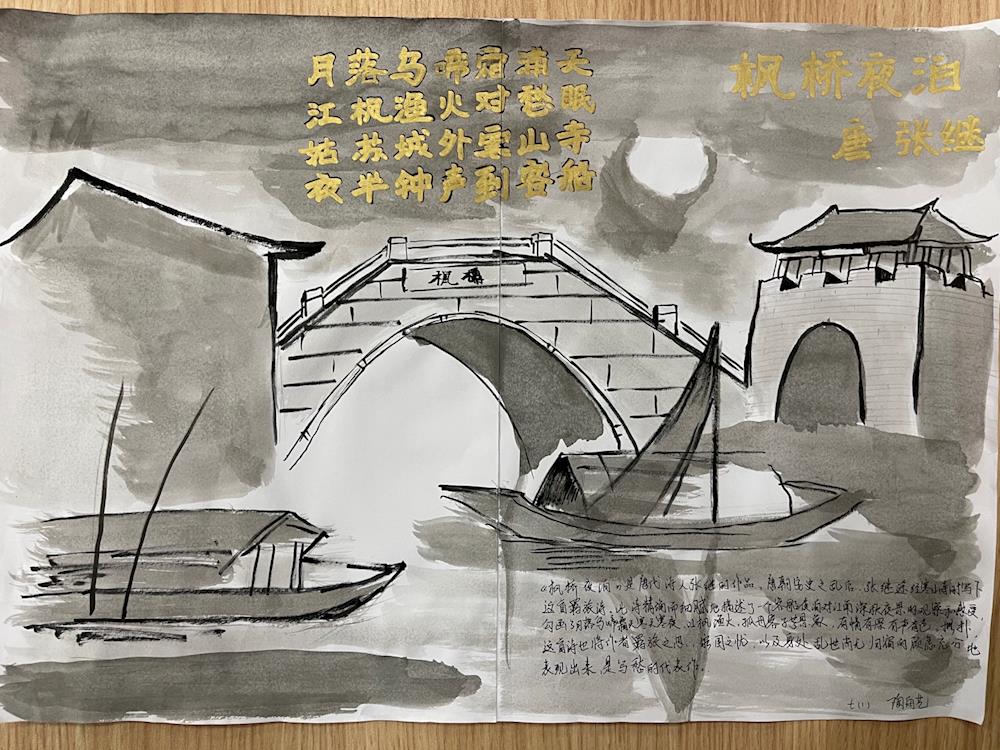 枫桥夜泊
唐 张继
月落乌啼霜满天
江枫渔火对愁眠
姑苏城外寒山寺
夜半钟声到客船
枫橋
《枫桥夜泊》是唐代诗人张继的作品。唐朝安史之乱后，张继途经寒山寺时写下
这首羁旅诗。此诗精确而细腻地描述了一个客船夜泊对江南深秋夜景的观察和感受，
勾画了月落乌啼霜天寒夜、江枫渔火、孤舟客子等景象，有情有景有声有色。
这首诗也将作者羁旅之思，家国之忧，以及身处乱世尚无归宿的顾虑充分地
表现出来，是写愁的代表作。
七(1)